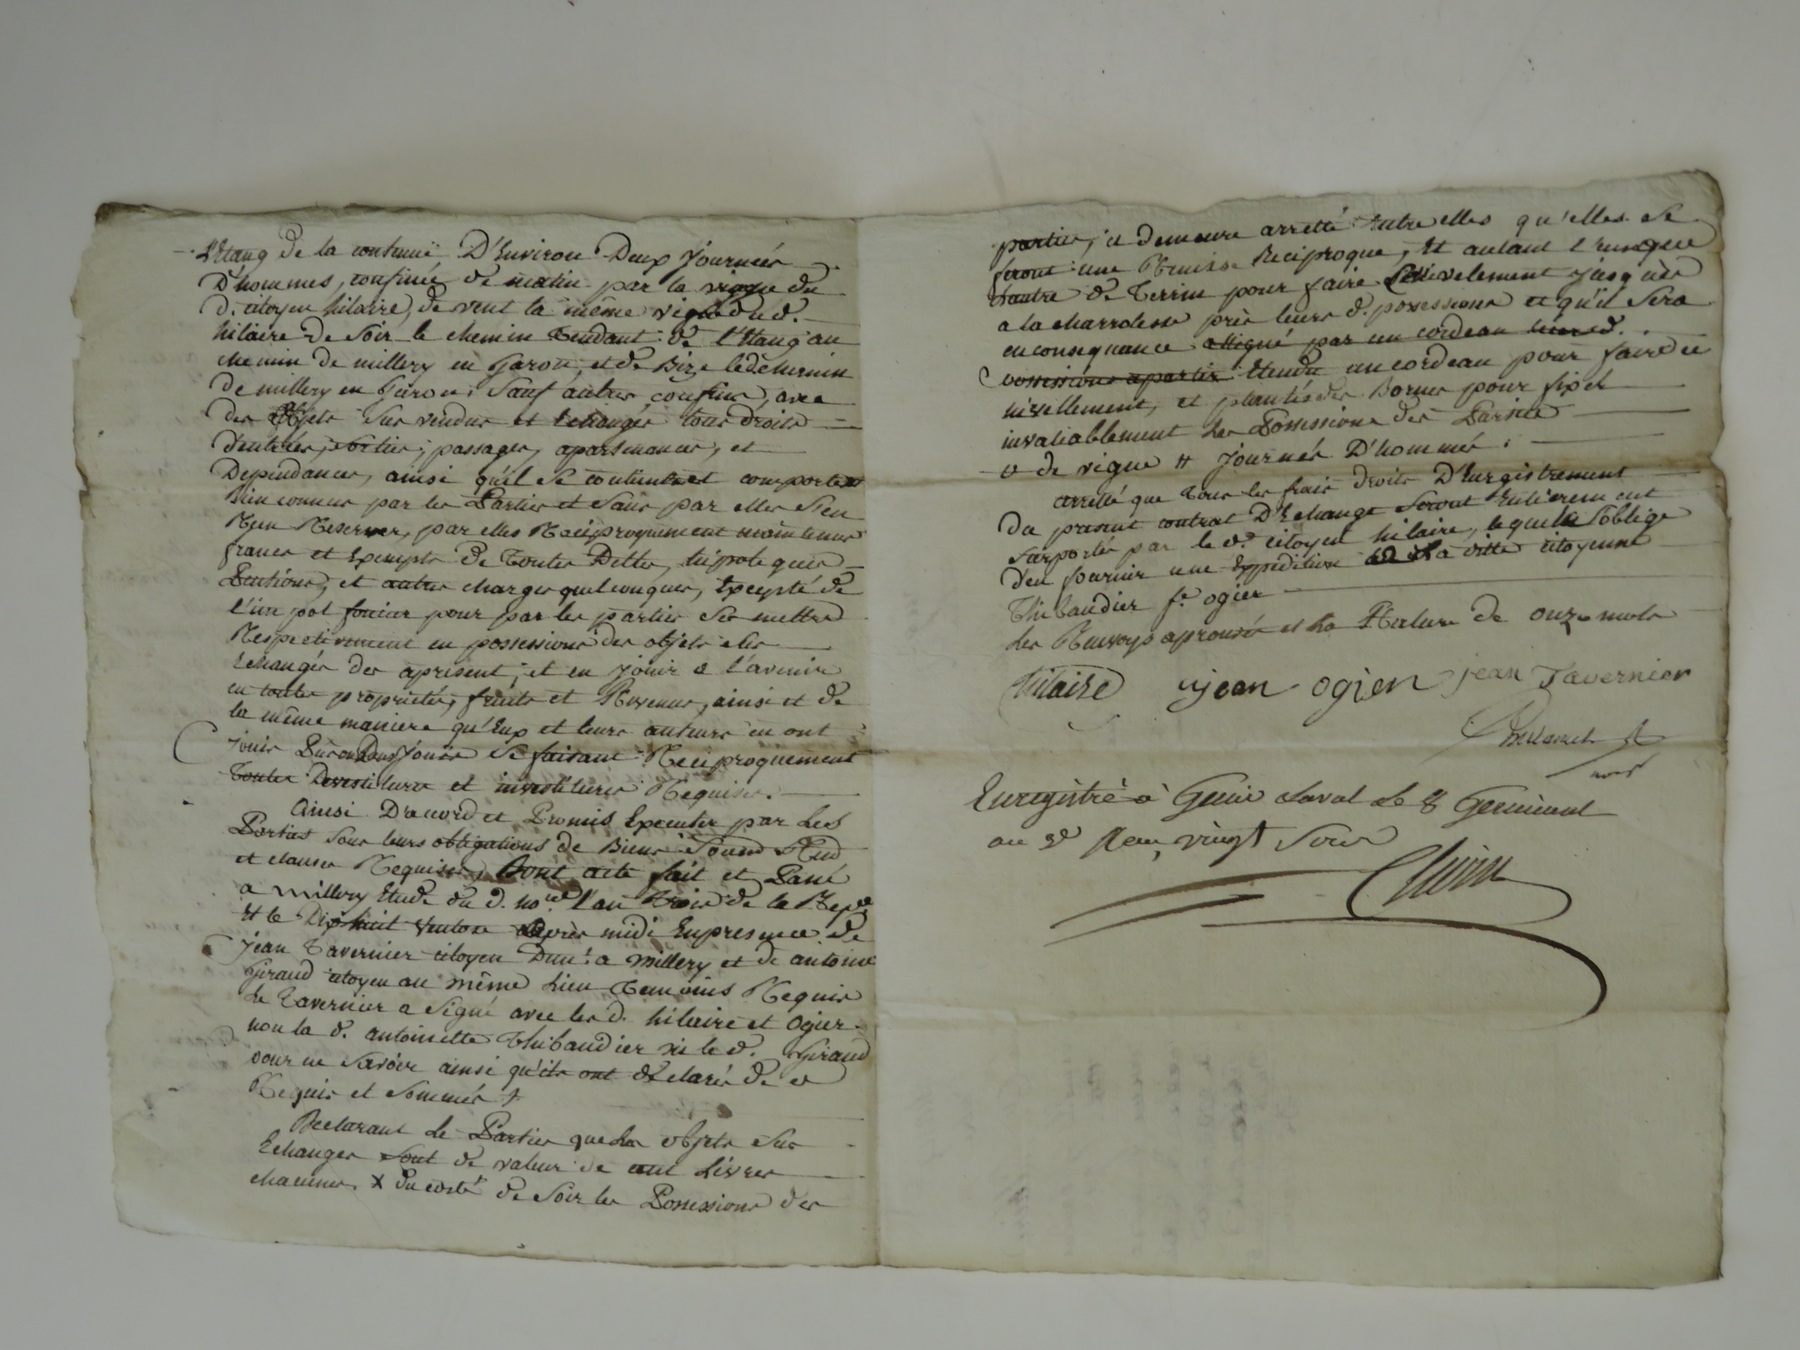 L'Etang de la contenue D'Environ Deux Journées
D'hommes, confinée de matin par la vigne du
d. citoyen hilaire, de vent la même vigne du d.
hilaire de Soir le chemin Tendant de l'Etang au
chemin de millery en Garon, et de Bize le d. chemin
de millery en Garon, Sauf autres confins, avec
des objets Sus vendus et Echangés tous droits
d'entrées, sorties, passages, apartenances, et
Dependances, ainsi qu'il Se contiennent et comportent
bien connus par les Parties et Sans par elles S'en
Rien Reserver, par elles Reciproquement maintenus
francs et Exempts de Toutes Dettes, hipoteques
Pentions, et autres charges quelconques, Excepté de
l'im pot foncier pour par les parties Se mettre
Respectivement en possessions des objets elles
Echangés des apresent, et en jouir a l'avenir
en toutes proprietés, fruits et Revenus, ainsi et de
la même maniere qu'Eux et leurs auteurs en ont
jouis Se faisant Reciproquement
Toutes Devestitures et investitures Requises.
Ainsi D'acord et Promis Executer par Les
Parties Sous leurs obligations de Biens
et clauses Requises, Dont acte fait et Passé
a Millery Etude du d. no.re l'an trois de la Rep.e
Et le Dix huit Ventose après midi En presence de
jean Tavernier citoyen Dem.t a millery et de antoine
Giraud citoyen au même Lieu Temoins Requis
Le Tavernier a Signé avec les d. hilaire et Ogier
non la d. antoinette Thibaudier ni le d. Giraud
pour ne Savoir ainsi qu'ils ont declaré de ce
Requis et Sommés +
Declarant Le Parties que Les objets Sus
Echangés Sont de valeur de cent Livres
chacunes X du costé de Soir les Possessions des
parties, et demeure arretté Entre elles qu'elles Se
feront une Remise Reciproque, Et autant l'une que
l'autre de Terrin pour faire jusques
a la charrolesse près leurs d. possessions et qu'il Sera
en consequance alligné par un cordeau
possessions apartir Etendu un cordeau pour faire ce
nivellement, et plantés des Bornes pour fixer
invaliablement Les Possessions des Parties
de vigne # journés D'hommés.
arretté que Tous les frais droits D'Enregistrement
Du present contrat D'Echange Seront Entierement
Suportés par le d. citoyen hilaire, lequel S'oblige
d'en fournir une Expedition a la ditte citoyenne
Thibaudier f.e ogier
Les Renvoys aprouvés et La Rature de onze mots
hilaire jean ogier jean Tavernier
Enregistré à Genis Laval Le 8 Germinal
an 3e Reçu vingt Sous